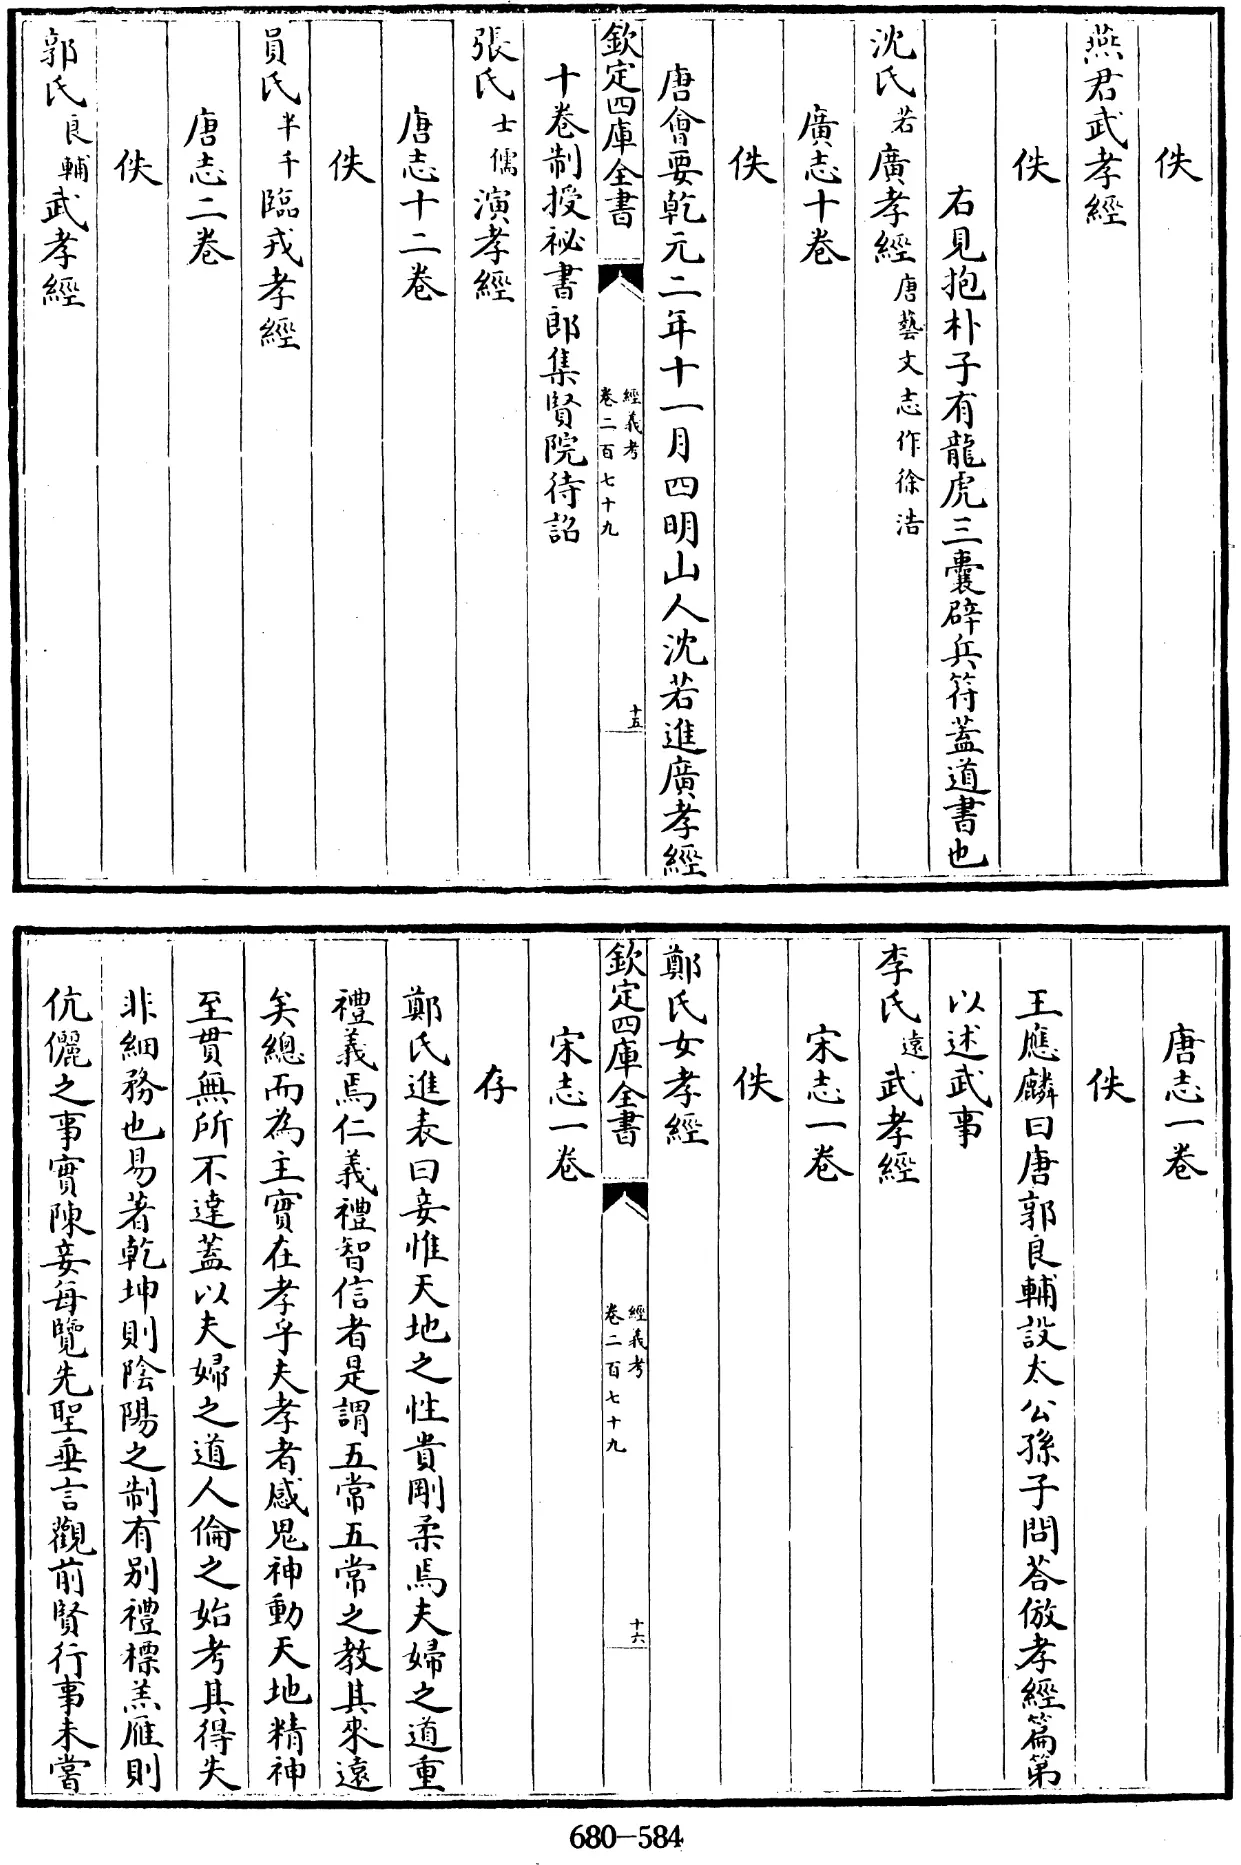 佚
燕君武孝經
佚
右見抱朴子有龍虎三囊辟兵符蓋道書也
沈氏若廣孝經唐藝文志作徐浩
廣志十卷
佚
唐會要乾元二年十一月四明山人沈若進廣孝經
欽定四庫全書 經義考 卷二百七十九 十五
十卷制授祕書郎集賢院待詔
張氏士儒演孝經
唐志十二卷
佚
員氏半千臨戎孝經
唐志二卷
佚
郭氏良輔武孝經
唐志一卷
佚
王應麟曰唐郭良輔設太公孫子問荅倣孝經篇第
以述武事
李氏遠武孝經
宋志一卷
佚
鄭氏女孝經
欽定四庫全書 經義考 卷二百七十九 十六
宋志一卷
存
鄭氏進表曰妾惟天地之性貴剛柔焉夫婦之道重
禮義焉仁義禮智信者是謂五常五常之教其來遠
矣總而為主實在孝乎夫孝者感鬼神動天地精神
至貫無所不達蓋以夫婦之道人倫之始考其得失
非細務也易著乾坤則陰陽之制有別禮標羔雁則
伉儷之事實陳妾每覽先聖垂言觀前賢行事未嘗
680-584